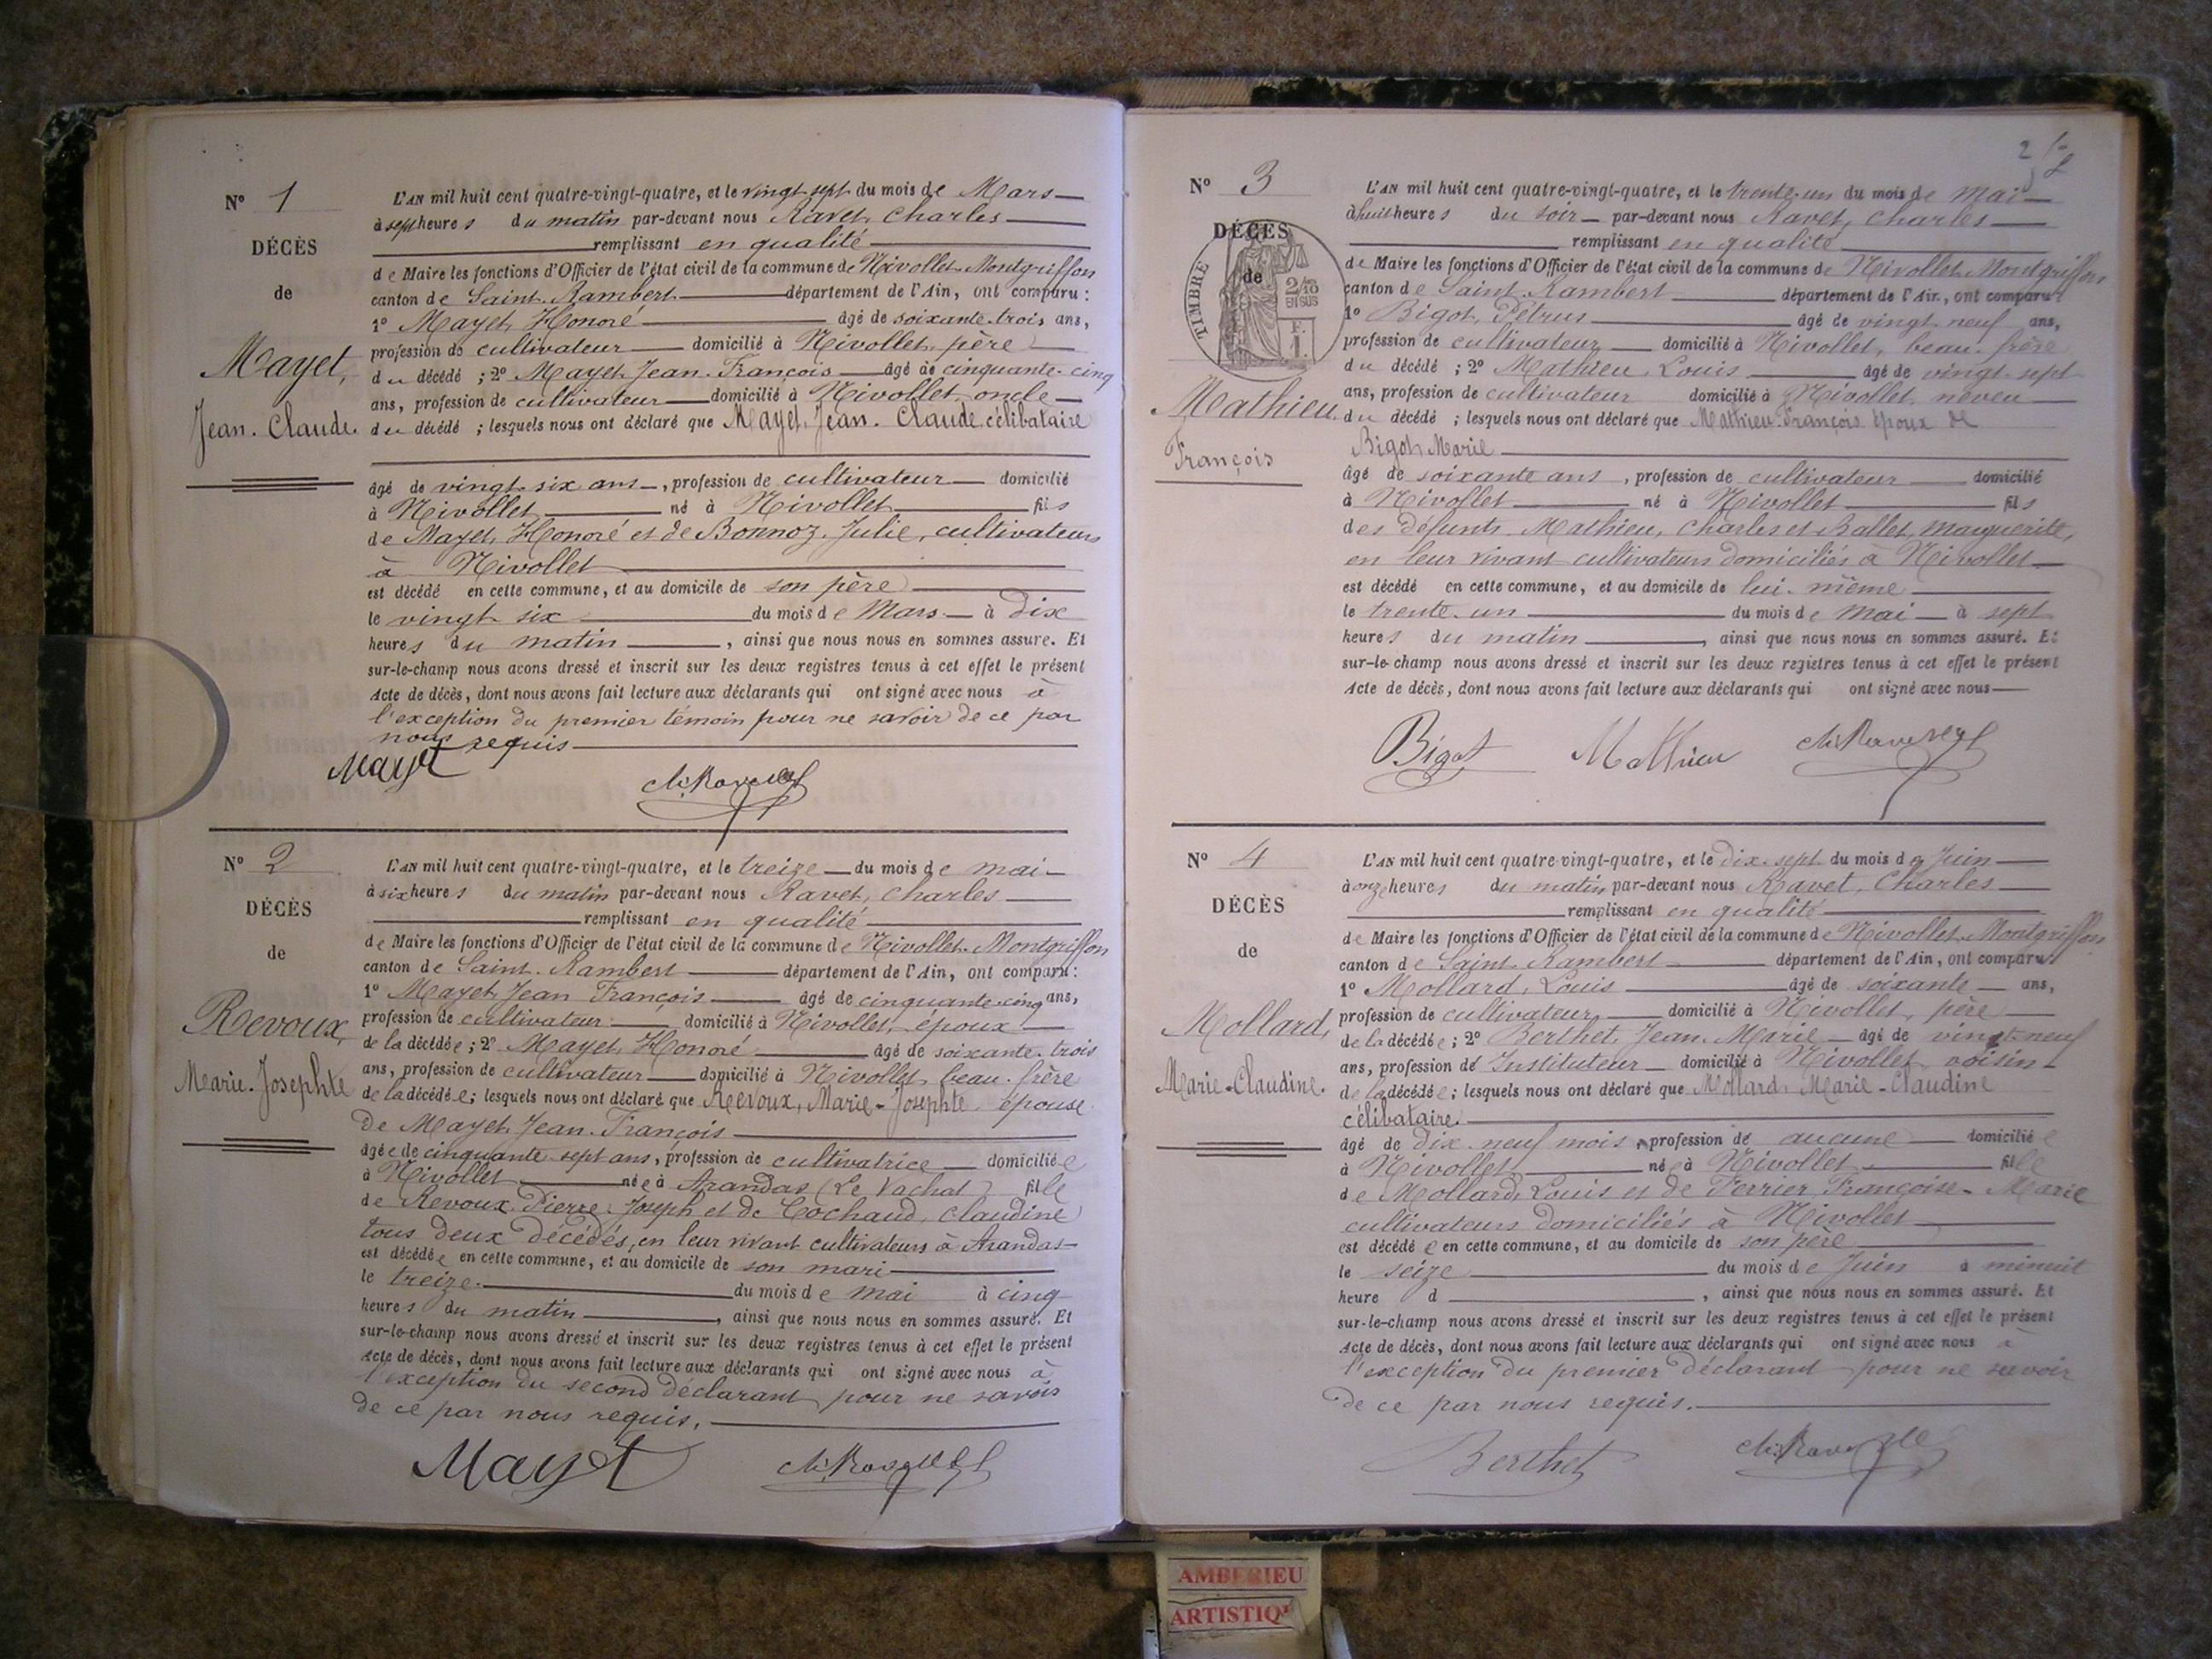 N° 1
DÉCÈS
de
Mayet,
Jean-Claude.
L'AN mil huit cent quatre-vingt-quatre, et le vingt-sept du mois de Mars
à sept heures du matin par-devant nous Ravet, Charles
remplissant en qualité
de Maire les fonctions d'Officier de l'état civil de la commune de Nivollet-Montgriffon
canton de Saint-Rambert département de l'Ain, ont comparu :
1° Mayet, Honoré âgé de soixante-trois ans,
profession de cultivateur domicilié à Nivollet, père
du décédé ; 2° Mayet, Jean-François âgé de cinquante-cinq
ans, profession de cultivateur domicilié à Nivollet, oncle
du décédé ; lesquels nous ont déclaré que Mayet, Jean-Claude, célibataire
âgé de vingt-six ans, profession de cultivateur domicilié
à Nivollet né à Nivollet fils
de Mayet, Honoré et de Bonnoz, Julie, cultivateurs
à Nivollet
est décédé en cette commune, et au domicile de son père
le vingt-six du mois de Mars à dix
heures du matin, ainsi que nous nous en sommes assuré. Et
sur-le-champ nous avons dressé et inscrit sur les deux registres tenus à cet effet le présent
Acte de décès, dont nous avons fait lecture aux déclarants qui ont signé avec nous à
l'exception du premier témoin pour ne savoir de ce par
nous requis
Mayet
N° 2
DÉCÈS
de
Revoux,
Marie-Josephte
L'AN mil huit cent quatre-vingt-quatre, et le treize du mois de mai
à six heures du matin par-devant nous Ravet, Charles
remplissant en qualité
de Maire les fonctions d'Officier de l'état civil de la commune de Nivollet-Montgriffon
canton de Saint-Rambert département de l'Ain, ont comparu :
1° Mayet, Jean François âgé de cinquante-cinq ans,
profession de cultivateur domicilié à Nivollet, époux
de la décédée ; 2° Mayet, Honoré âgé de soixante-trois
ans, profession de cultivateur domicilié à Nivollet, beau-frère
de la décédée ; lesquels nous ont déclaré que Revoux, Marie-Josephte, épouse
de Mayet, Jean-François
âgée de cinquante-sept ans, profession de cultivatrice domiciliée
à Nivollet née à Arandas (Le Vachat) fille
de Revoux, Pierre-Joseph et de Cochaud, Claudine
tous deux décédés, en leur vivant cultivateurs à Arandas
est décédée en cette commune, et au domicile de son mari
le treize du mois de mai à cinq
heures du matin, ainsi que nous nous en sommes assuré. Et
sur-le-champ nous avons dressé et inscrit sur les deux registres tenus à cet effet le présent
Acte de décès, dont nous avons fait lecture aux déclarants qui ont signé avec nous à
l'exception du second déclarant pour ne savoir
de ce par nous requis.
Mayet
2
N° 3
DÉCÈS
de
TIMBRE
2/10
EN SUS
Mathieu
François
L'AN mil huit cent quatre-vingt-quatre, et le trente-un du mois de mai
à huit heures du soir par-devant nous Ravet, Charles
remplissant en qualité
de Maire les fonctions d'Officier de l'état civil de la commune de Nivollet-Montgriffon
canton de Saint-Rambert département de l'Ain, ont comparu :
1° Bigot, Pétrus âgé de vingt-neuf ans,
profession de cultivateur domicilié à Nivollet, beau-frère
du décédé ; 2° Mathieu, Louis âgé de vingt-sept
ans, profession de cultivateur domicilié à Nivollet, neveu
du décédé ; lesquels nous ont déclaré que Mathieu-François, époux de
Bigot, Marie
âgé de soixante ans, profession de cultivateur domicilié
à Nivollet né à Nivollet fils
des défunts Mathieu, Charles et Ballet, Marguerite,
en leur vivant cultivateurs domiciliés à Nivollet
est décédé en cette commune, et au domicile de lui-même
le trente-un du mois de mai à sept
heures du matin, ainsi que nous nous en sommes assuré. Et
sur-le-champ nous avons dressé et inscrit sur les deux registres tenus à cet effet le présent
Acte de décès, dont nous avons fait lecture aux déclarants qui ont signé avec nous
Bigot Mathieu
N° 4
DÉCÈS
de
Mollard,
Marie-Claudine.
L'AN mil huit cent quatre-vingt-quatre, et le dix-sept du mois de Juin
à onze heures du matin par-devant nous Ravet, Charles
remplissant en qualité
de Maire les fonctions d'Officier de l'état civil de la commune de Nivollet-Montgriffon
canton de Saint-Rambert département de l'Ain, ont comparu :
1° Mollard, Louis âgé de soixante ans,
profession de cultivateur domicilié à Nivollet, père
de la décédée ; 2° Berthet, Jean-Marie âgé de vingt-neuf
ans, profession de Instituteur domicilié à Nivollet, voisin
de la décédée ; lesquels nous ont déclaré que Mollard, Marie-Claudine
célibataire.
âgé de dix-neuf mois, profession de aucune domiciliée
à Nivollet née à Nivollet fille
de Mollard, Louis et de Ferrier, Françoise-Marie
cultivateurs domiciliés à Nivollet
est décédée en cette commune, et au domicile de son père
le seize du mois de Juin à minuit
heure d , ainsi que nous nous en sommes assuré. Et
sur-le-champ nous avons dressé et inscrit sur les deux registres tenus à cet effet le présent
Acte de décès, dont nous avons fait lecture aux déclarants qui ont signé avec nous à
l'exception du premier déclarant pour ne savoir
de ce par nous requis.
Berthet
AMBERIEU
ARTISTIQUE